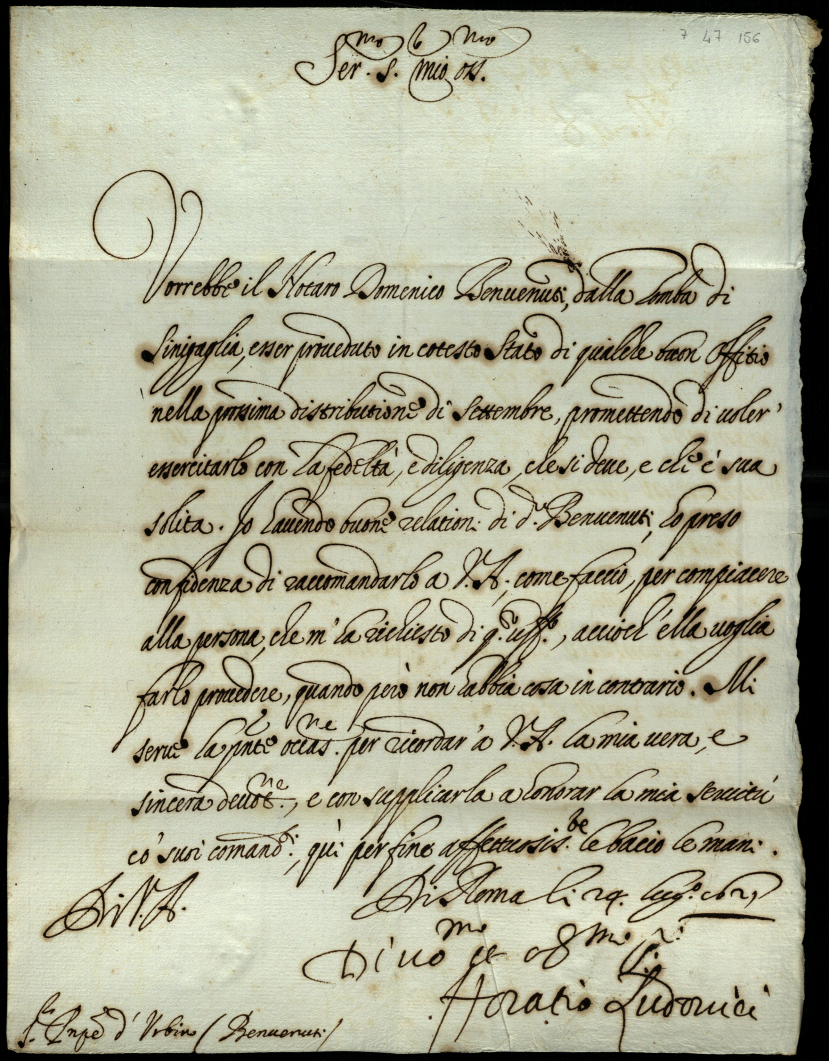 7 47 156
Ser.mo S.r mio oss.mo
Vorrebbe il Notaro Domenico Benvenuti, dalla Tomba di
Sinigaglia, esser proveduto in cotesto Stato di qualche buon Offitio
nella prossima distributione di Settembre, promettendo di voler'
essercitarlo con la fedeltà, e diligenza, che si deve, e ch'è sua
solita. Io havendo buone relation: di d.o Benvenuti, ho preso
confidenza di raccomandarlo a V.A., come faccio, per compiacere
alla persona, che m'ha richiesto di q.to uff.o, accioch' ella voglia
farlo provedere, quando però non habbia cosa in contrario. Mi
serve la pnte occas.ne per ricordar' a V.A. la mia vera, e
sincera devot.ne, e con supplicarla a honorar la mia servitù
co' suoi comand.i, qui per fine affettuosis.te le bacio le mani.
Di V.A.
Di Roma li 24. lug.o 1621
Divo.mo et obg.mo s.r
Horatio Ludovici
S.r Pnpe d'Urbino (Benvenuti)